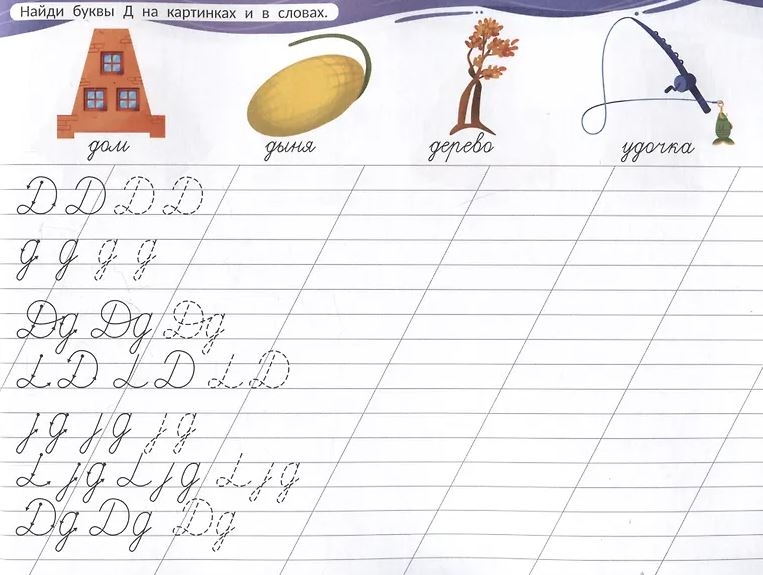 Найди буквы Д на картинках и в словах.
дом дыня дерево удочка
Д Д Д Д
д д д д
Дд Дд Дд
Д Д Д
д д д
Д д Д д Д д
Дд Дд Дд